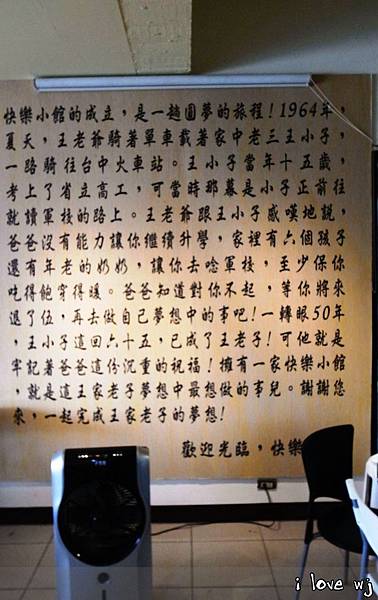 快樂小館的成立，是一趟圓夢的旅程！1964年，
夏天，王老爺騎著單車載著家中老三王小子，
一路騎往台中火車站。王小子當年十五歲，
考上了省立高工，可當時那幕是小子正前往
就讀軍校的路上。王老爺跟王小子感嘆地說，
爸爸沒有能力讓你繼續升學，家裡有六個孩子
還有年老的奶奶，讓你去唸軍校，至少保你
吃得飽穿得暖。爸爸知道對你不起，等你將來
退了伍，再去做自己夢想中的事吧！一轉眼50年
，王小子這回六十五，已成了王老子！可他就是
牢記著爸爸這份沉重的祝福！擁有一家快樂小館
，就是這王家老子夢想中最想做的事兒。謝謝您
來，一起完成王家老子的夢想！
歡迎光臨，快樂
i love wj